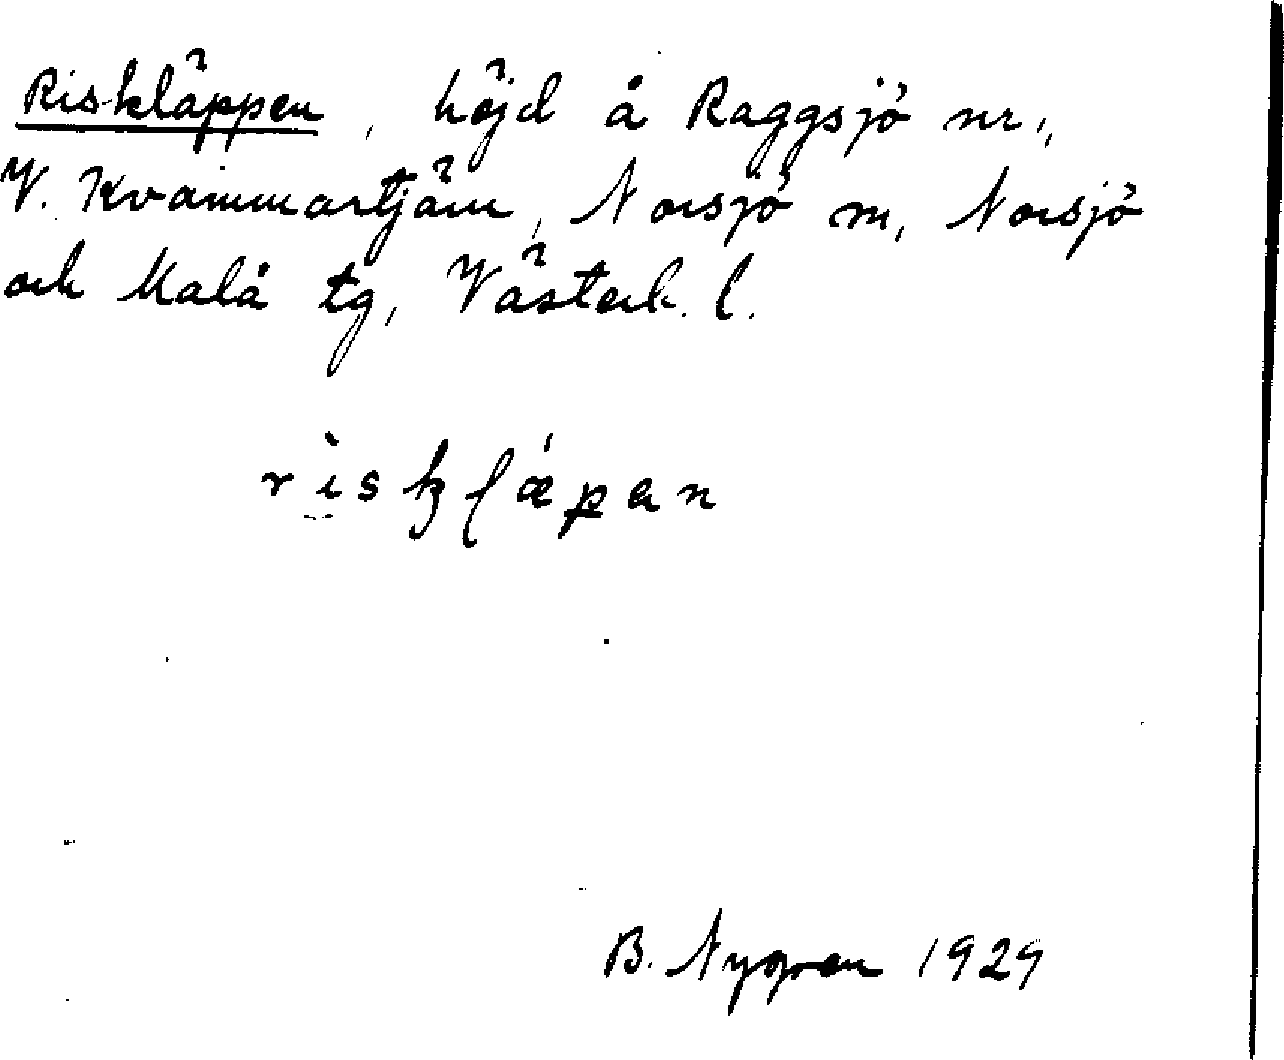 Riskläppen, höjd å Raggsjö nr 1,
V. Kvammartjärn, Norsjö sn, Norsjö
och Malå tg, Västerb. l.
riskläpan
B. Nygren 1929